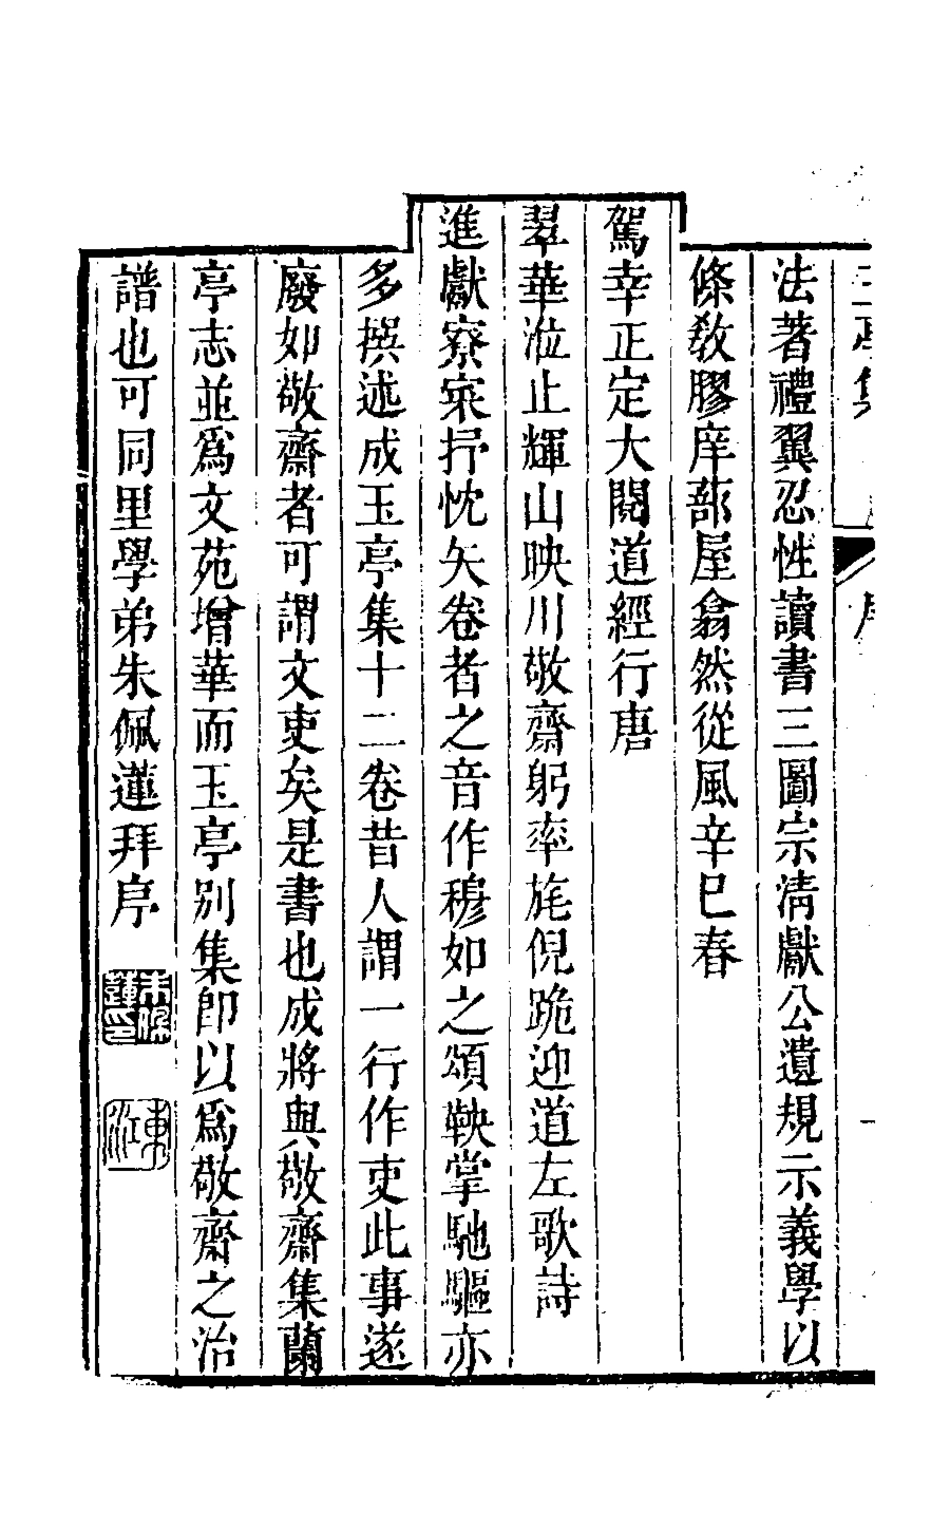 法著禮翼忍性讀書三圖宗清獻公遺規示義學以
條教膠庠蔀屋翕然從風辛巳春
駕幸正定大閱道經行唐
翠華涖止輝山映川敬齋躬率旄倪跪迎道左歌詩
進獻寮寀抒忱矢卷者之音作穆如之頌鞅掌馳驅亦
多撰述成玉亭集十二卷昔人謂一行作吏此事遂
廢如敬齋者可謂文吏矣是書也成將與敬齋集蘭
亭志並爲文苑增華而玉亭別集卽以爲敬齋之治
譜也可同里學弟朱佩蓮拜序
朱佩蓮印
東江